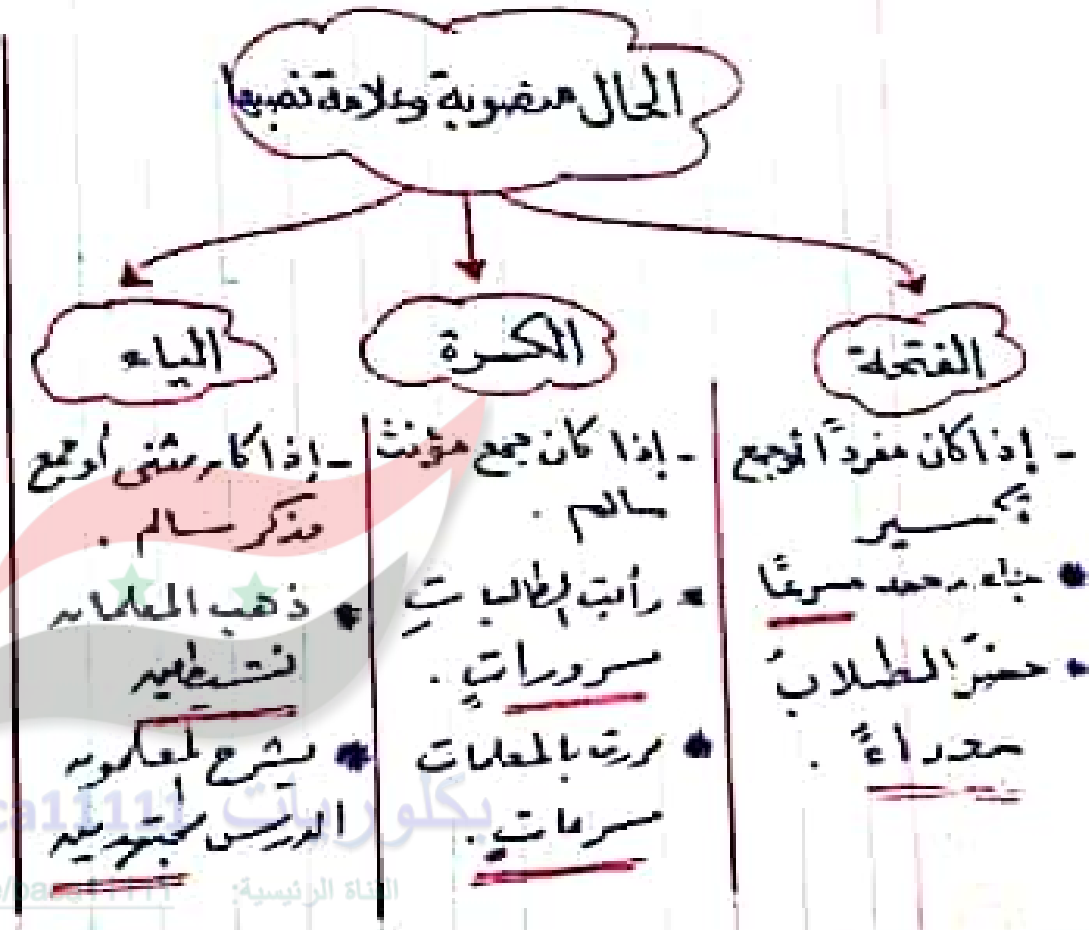 الحال منصوبة وعلامة نصبها
الفتحة
- إذا كان مفرداً أو جمع
تكسير
* جاء محمد مسرعًا
* حضرَ الطلابُ
سعداءً .
الكسرة
- إذا كان جمع مؤنث
سالم .
* رأيت الطالباتِ
مسروراتٍ .
* مررت بالمعلمات
مسرعاتٍ .
الياء
- إذا كان مثنى أو جمع
مذكر سالم .
* ذهب المعلمان
نشيطين
* يشرح المعلمون
الدرس مجتهدين
بكلوريات
القناة الرئيسية: